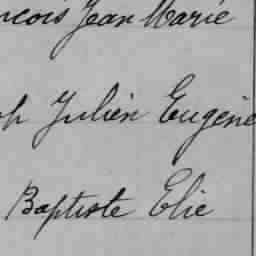 ncois Jean Marie
ph Julien Eugène
Baptiste Elie